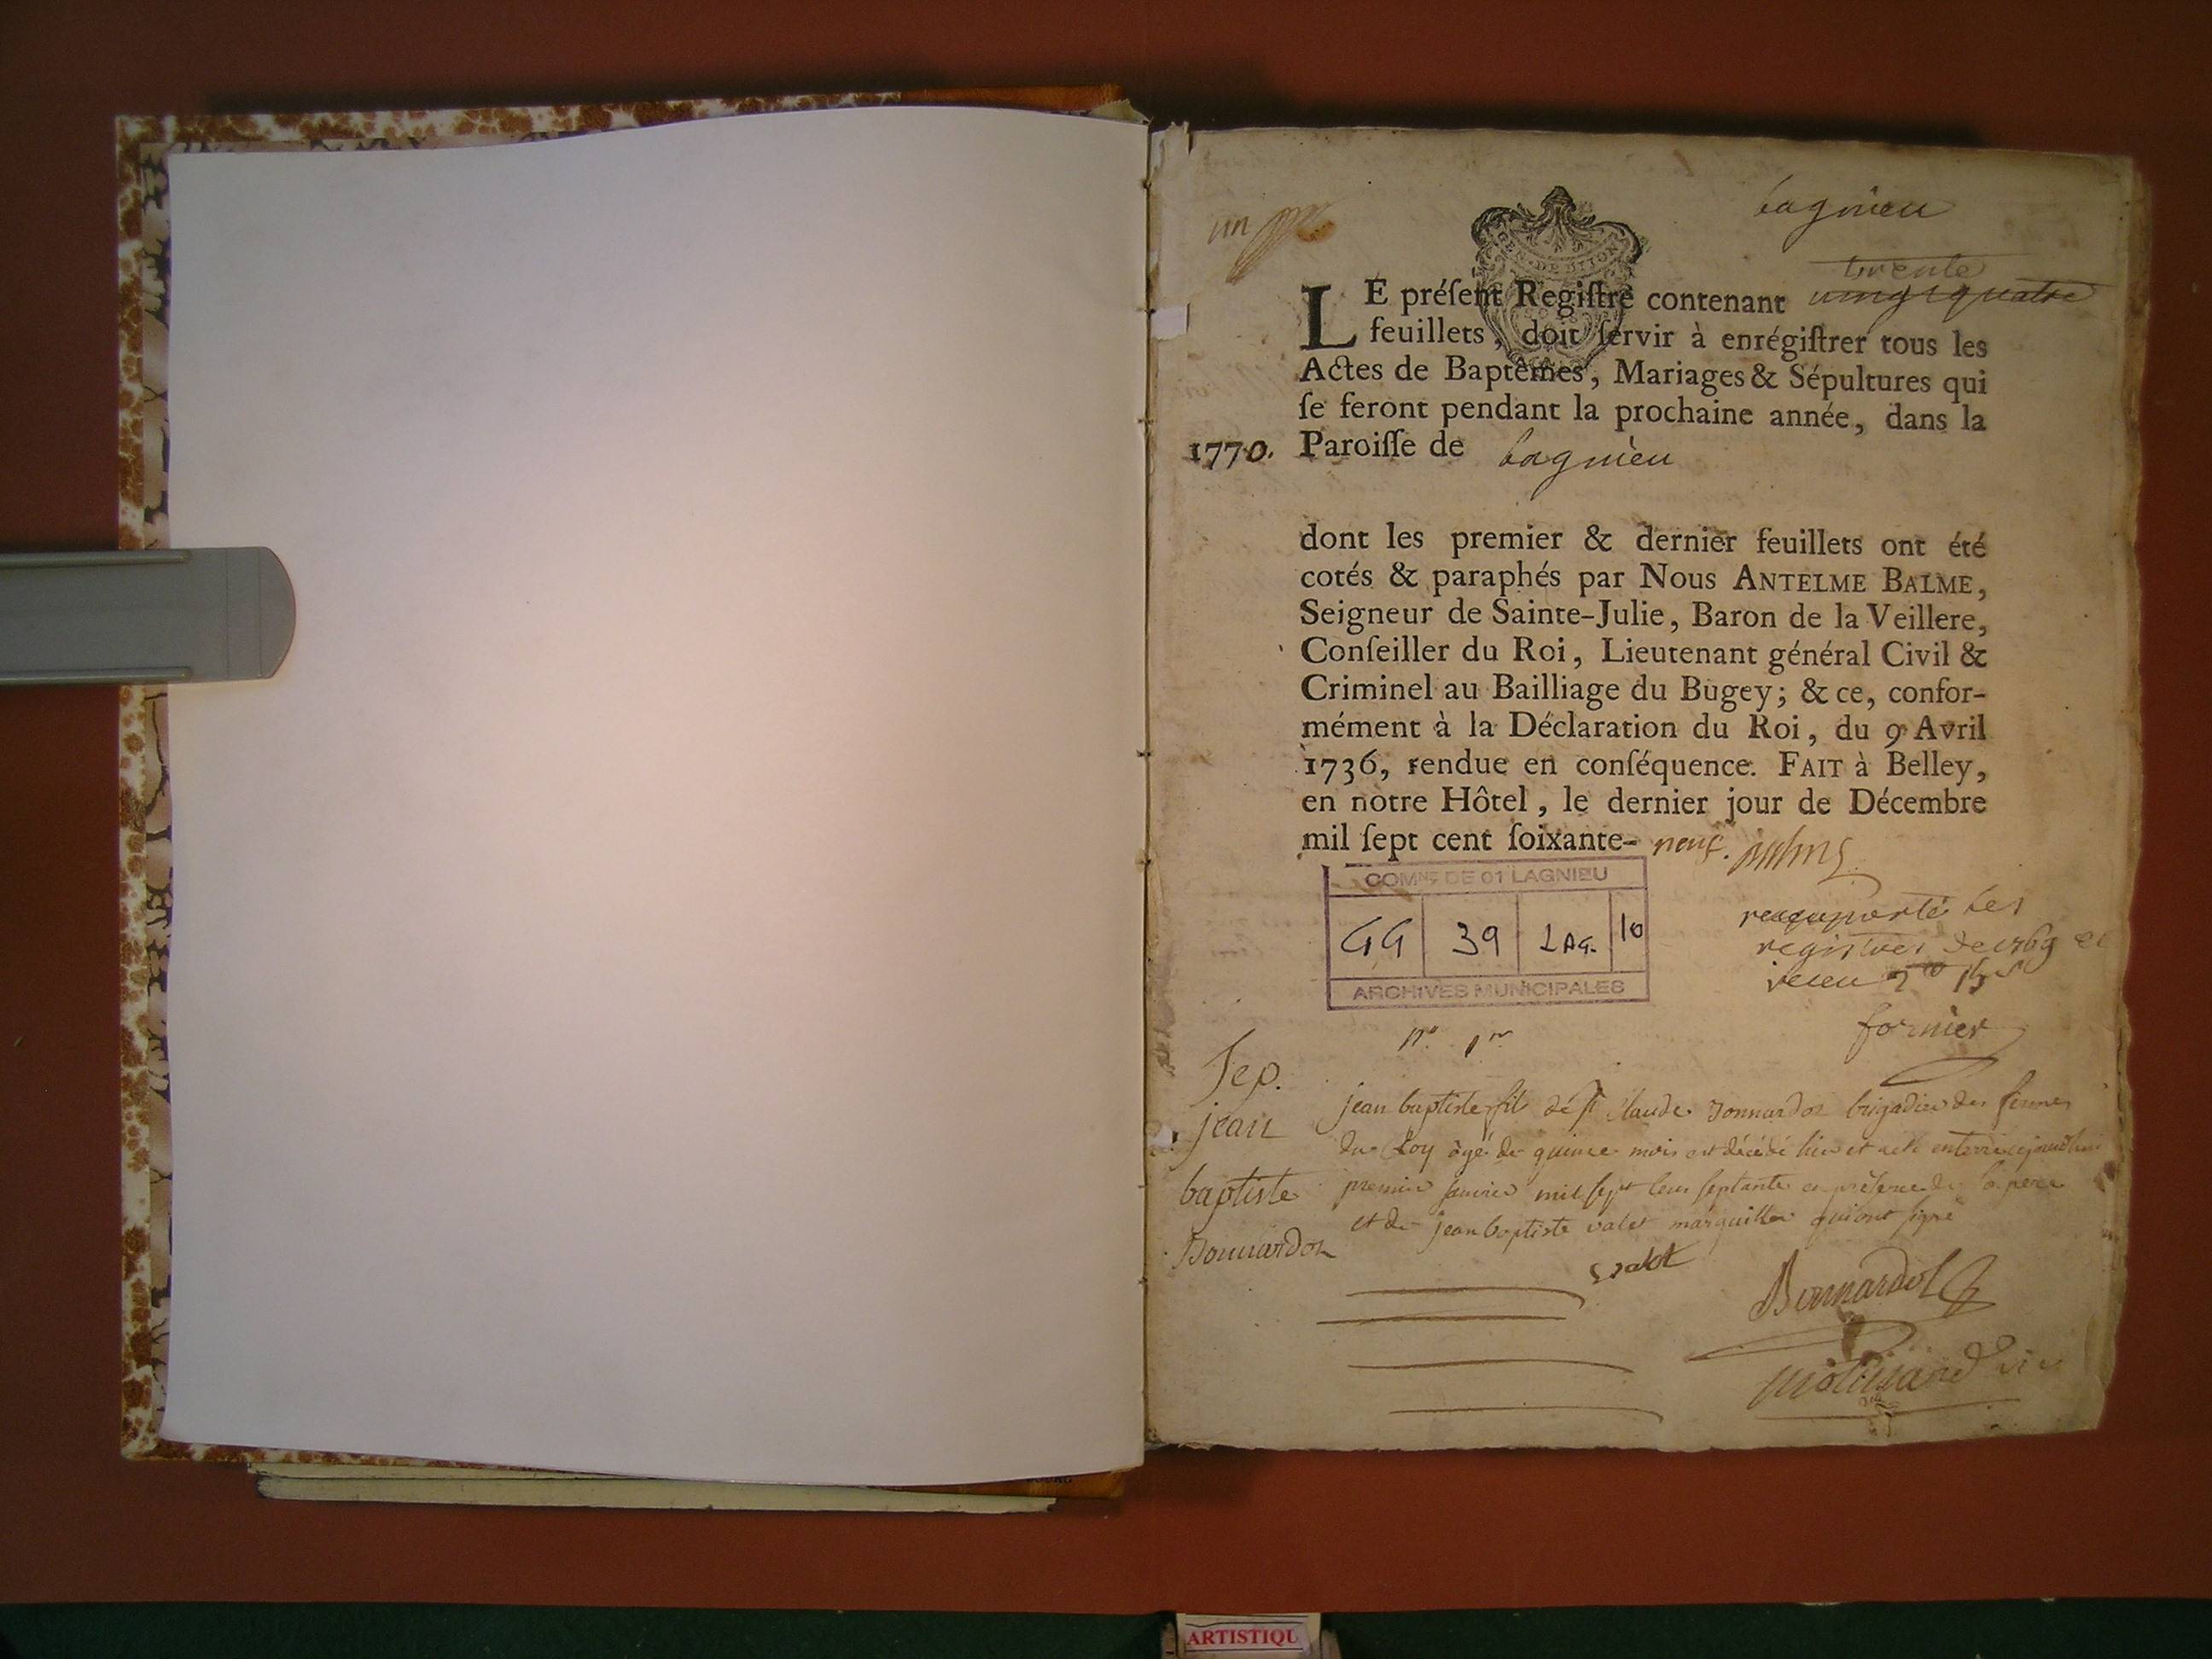 un
lagnieu
GEN. DE DIJON
trente
LE préſent Regiſtre contenant vingt quatre
feuillets, doit ſervir à enrégiſtrer tous les
Actes de Baptêmes, Mariages & Sépultures qui
ſe feront pendant la prochaine année, dans la
1770. Paroiſſe de lagnieu
dont les premier & dernier feuillets ont été
cotés & paraphés par Nous ANTELME BALME,
Seigneur de Sainte-Julie, Baron de la Veillere,
Conſeiller du Roi, Lieutenant général Civil &
Criminel au Bailliage du Bugey; & ce, confor-
mément à la Déclaration du Roi, du 9 Avril
1736, rendue en conſéquence. FAIT à Belley,
en notre Hôtel, le dernier jour de Décembre
mil ſept cent ſoixante- neuf. Balme
COMNE DE 01 LAGNIEU
GG 39 LAG. 10
ARCHIVES MUNICIPALES
raporté les
registres de 1769 et
receu
fornier
no 1er
Sep.
jean
baptiste
Bonnardot
jean baptiste fils de sr Claude Bonnardot brigadier des fermes
du Roy agé de quinze mois est décédé hier et a eté enterré cejourdhui
premier janvier mil sept cens septante en présence de son pere
et de jean baptiste valet marguillier qui ont signé
valet
Bonnardot
ARTISTIQU